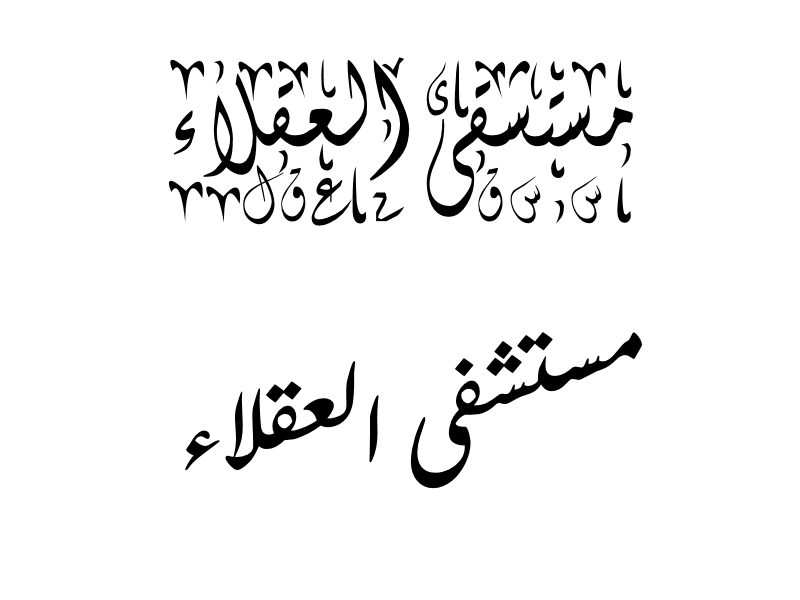 مستشفى العقلاء
مستشفى العقلاء